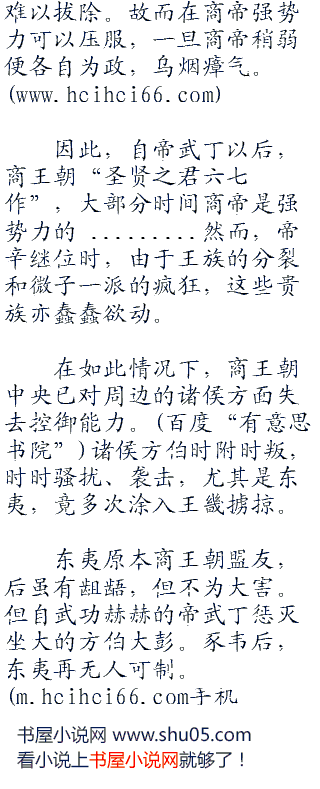 难以拔除。故而在商帝强势
力可以压服，一旦商帝稍弱
便各自为政，乌烟瘴气。
(www.hcihci66.com)
因此，自帝武丁以后，
商王朝“圣贤之君六七
作”，大部分时间商帝是强
势力的 .........然而，帝
辛继位时，由于王族的分裂
和微子一派的疯狂，这些贵
族亦蠢蠢欲动。
在如此情况下，商王朝
中央已对周边的诸侯方面失
去控御能力。(百度“有意思
书院”)诸侯方伯时附时叛，
时时骚扰、袭击，尤其是东
夷，竟多次涂入王畿掳掠。
东夷原本商王朝盟友，
后虽有龃龉，但不为大害。
但自武功赫赫的帝武丁惩灭
坐大的方伯大彭。豕韦后，
东夷再无人可制。
(m.hcihci66.com手机
书屋小说网 www.shu05.com
看小说上书屋小说网就够了！